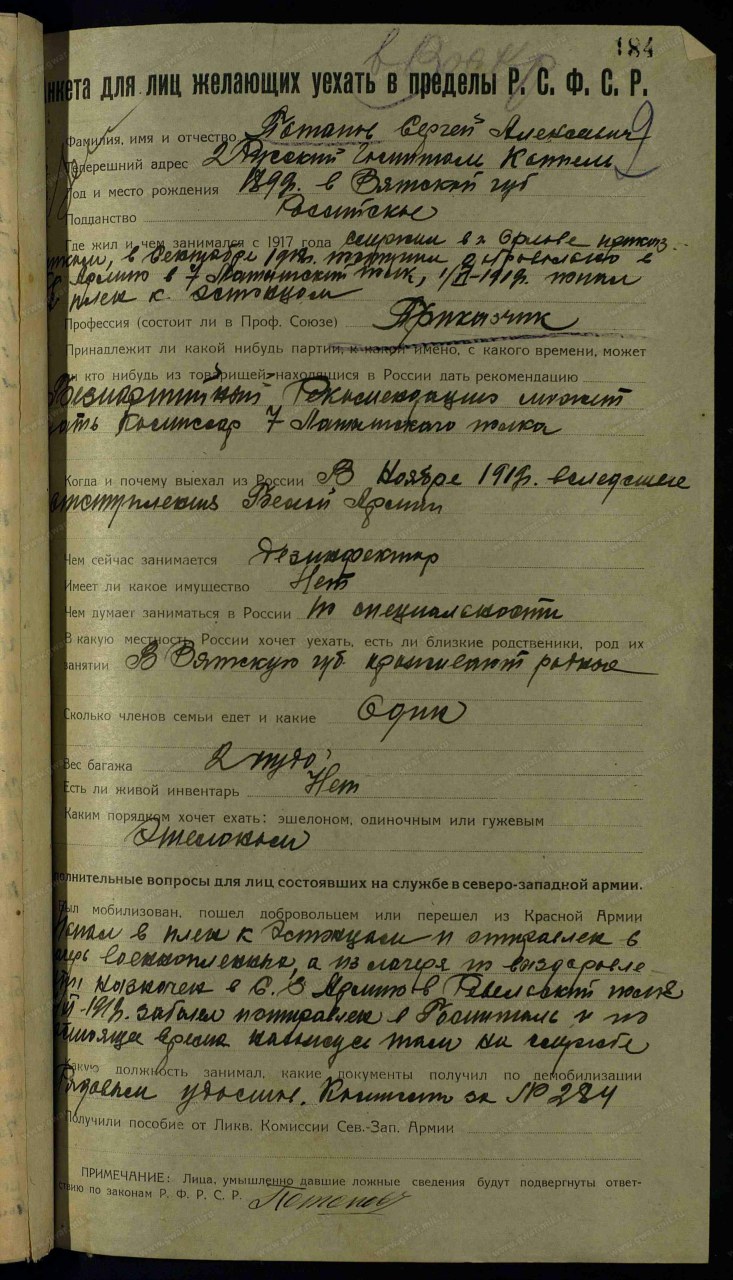 184
Анкета для лиц желающих уехать в пределы Р. С. Ф. С. Р.
Фамилия, имя и отчество Потапов Сергей Алексеевич
Теперешний адрес 2 Русский Госпиталь Коппель
Год и место рождения 189 г. в Вятской губ
Подданство Российское
Где жил и чем занимался с 1917 года служил в г. Орлове приказ-
чиком, в Сентябре 1918г. поступил добровольно в
Армию в 7 Латышский полк, 1919г. попал
в плен к Эстонцам
Профессия (состоит ли в Проф. Союзе) Приказчик
Принадлежит ли какой нибудь партии, к какой имено, с какого времени, может
ли кто нибудь из товарищей находящися в России дать рекомендацию
Беспартийный Рекомендацию может
дать Комиссар 7 Латышского полка
Когда и почему выехал из России В Ноябре 1919г. вследствие
отступления Белой Армии
Чем сейчас занимается Дезинфектор
Имеет ли какое имущество Нет
Чем думает заниматься в России по специальности
В какую местность России хочет уехать, есть ли близкие родственики, род их
занятии В Вятскую губ проживают родные
Сколько членов семьи едет и какие Один
Вес багажа 2 пуда
Есть ли живой инвентарь Нет
Каким порядком хочет ехать: эшелоном, одиночным или гужевым
Эшелоном
Дополнительные вопросы для лиц состоявших на службе в северо-западной армии.
Был мобилизован, пошел добровольцем или перешел из Красной Армии
Попал в плен к Эстонцам и отправлен в
лагерь военнопленных, а из лагеря по выздоровле-
нии назначен в С. З Армию в Ревельский полк
1919г. заболел и отправлен в Госпиталь и по
настоящее время нахожусь там на службе
Какую должность занимал, какие документы получил по демобилизации
Рядовым удостов. Комитет за № 284
Получили пособие от Ликв. Комиссии Сев.-Зап. Армии
ПРИМЕЧАНИЕ: Лица, умышленно давшие ложные сведения будут подвергнуты ответ-
ствию по законам Р. Ф. Р. С. Р. Потапов